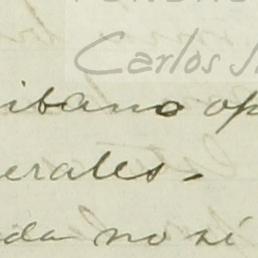 Carlos
ibano op
erales.
da no si